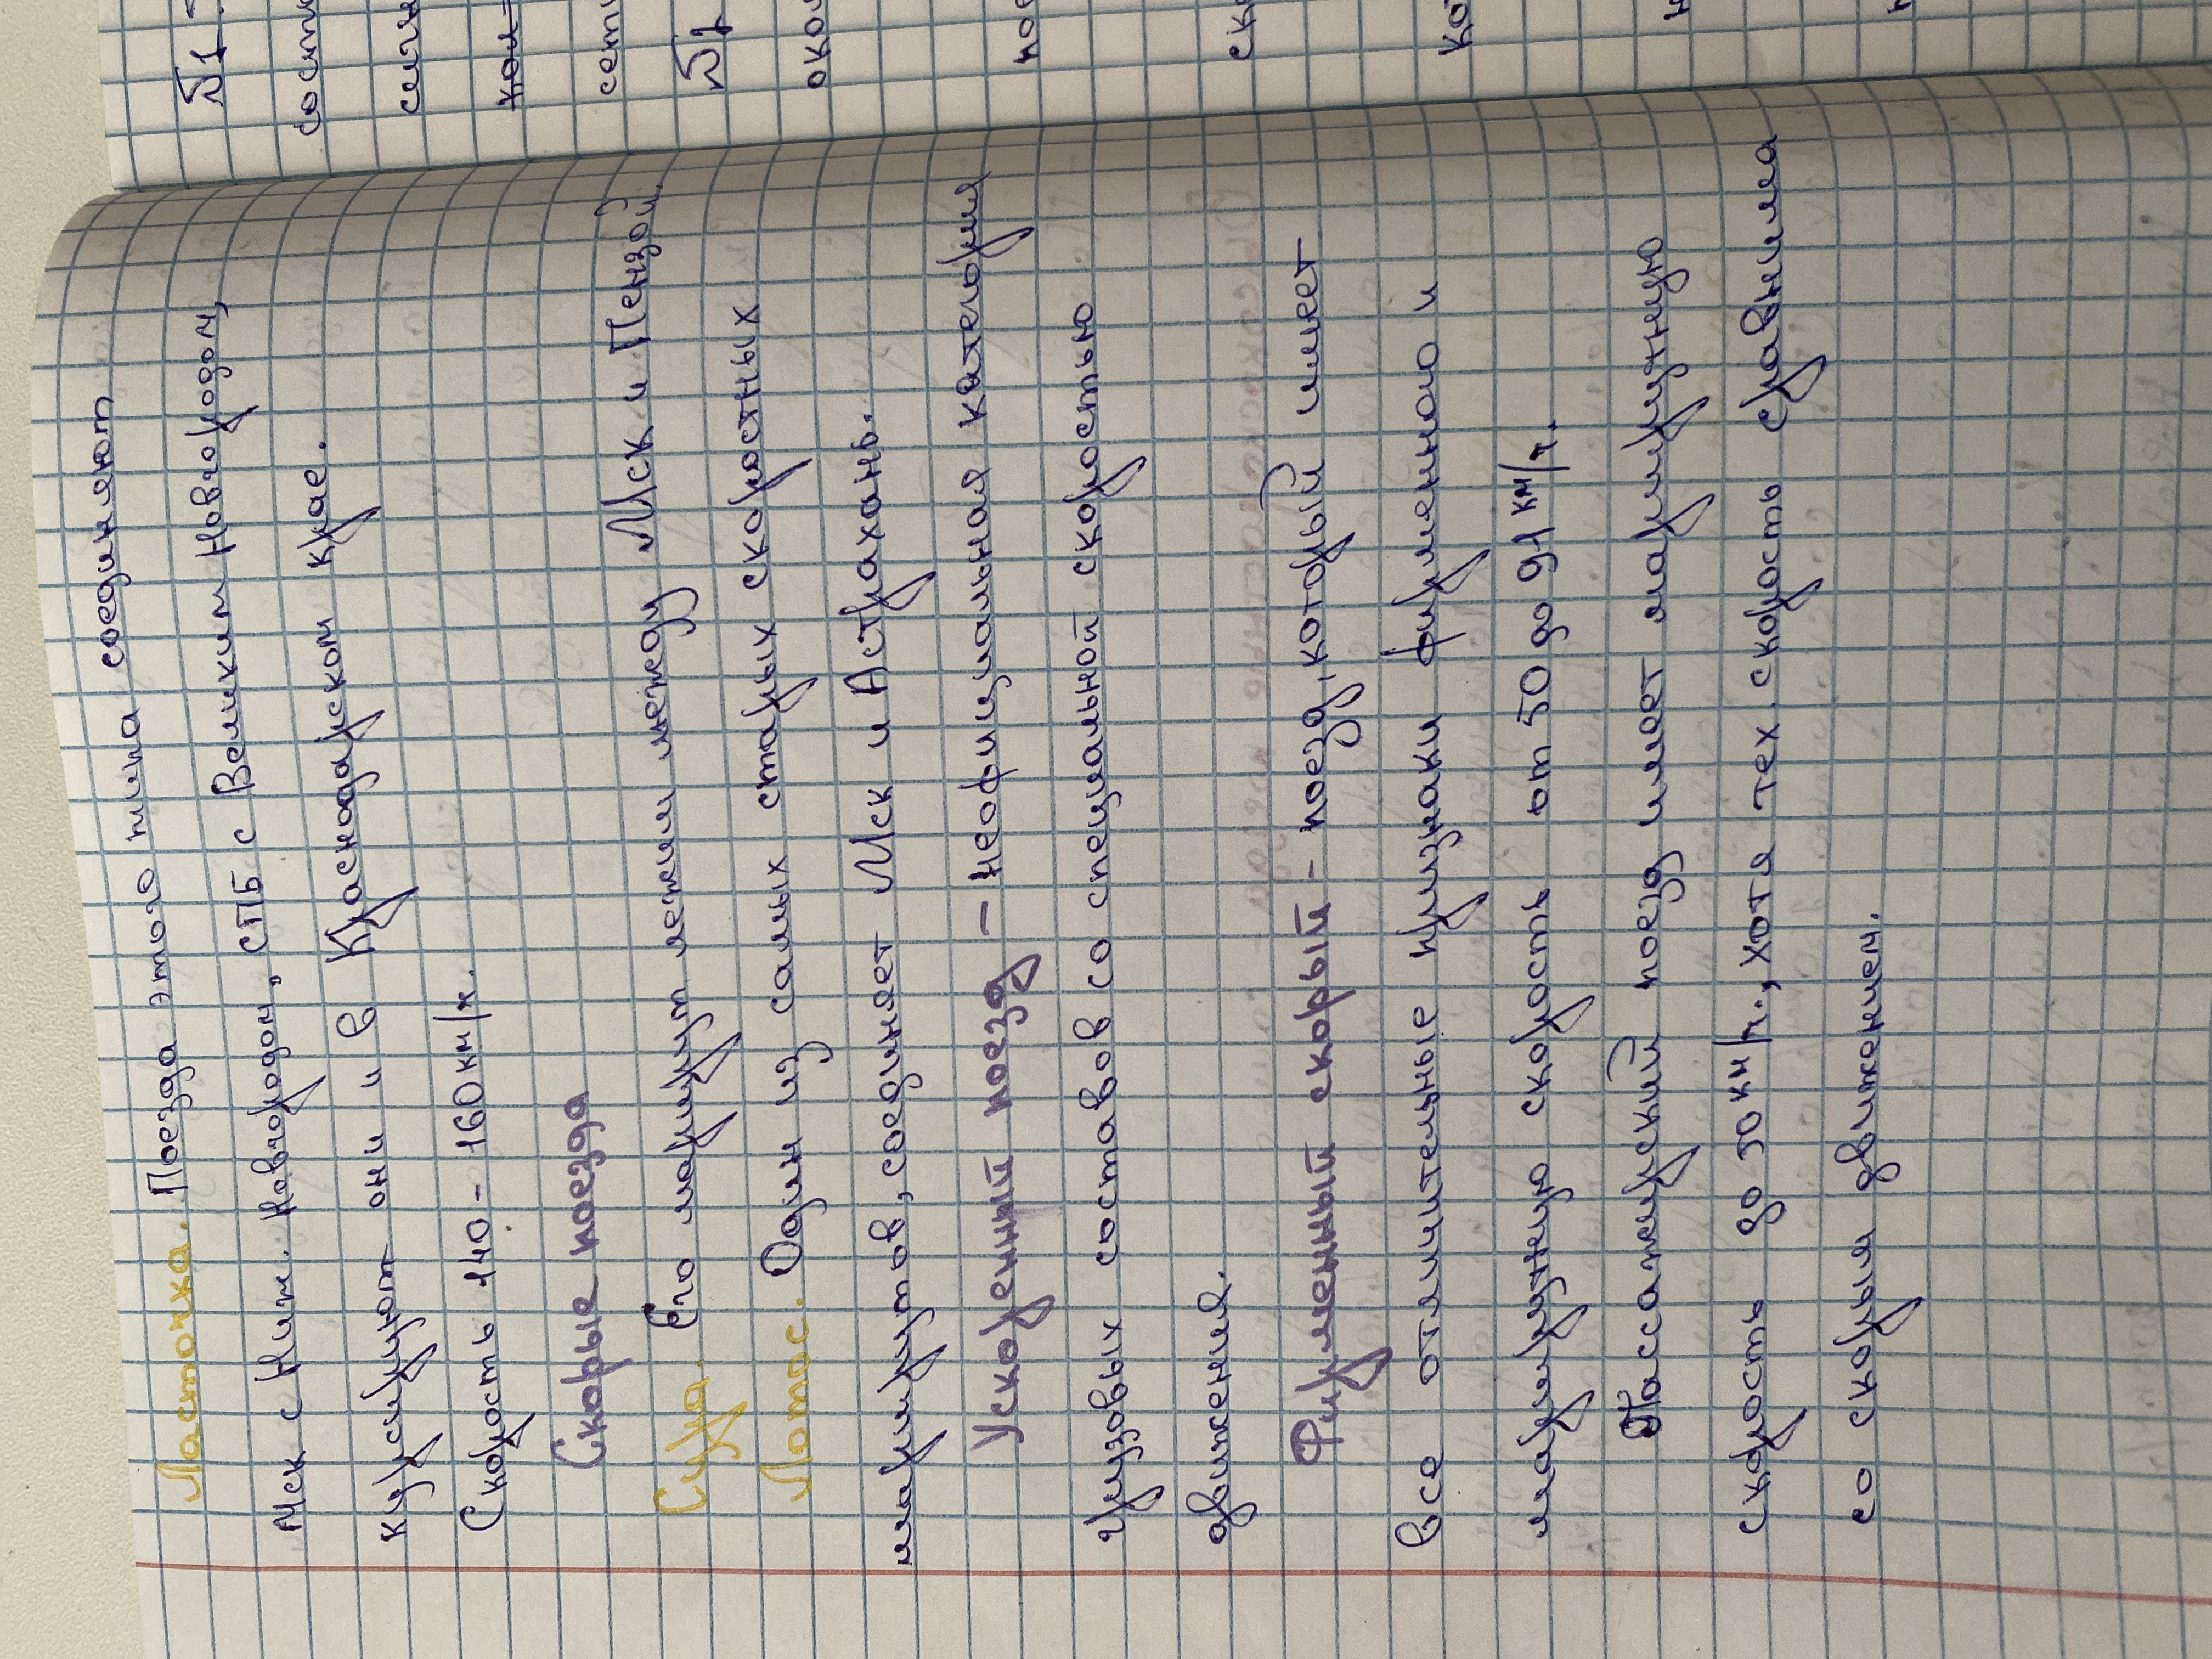 Ласточка. Поезда этого типа соединяют
Мск с Ниж. Новгородом, СПБ с Великим Новгородом,
курсируют они и в Краснодарском крае.
Скорость 140 - 160 км/ч.
Скорые поезда
Сура. Его маршрут лежит между Мск и Пензой.
Лотос. Один из самых старых скоростных
маршрутов, соединяет Мск и Астрахань.
Ускоренный поезд - неофициальная категория
грузовых составов со специальной скоростью
движения.
Фирменный скорый - поезд, который имеет
все отличительные признаки фирменного и
маршрутную скорость от 50 до 91 км/ч.
Пассажирский поезд имеет маршрутную
скорость до 50 км/ч., хотя тех. скорость сравнима
со скорым движением.
№1
сост
сети
сет
№1
око
пое
ск
ко